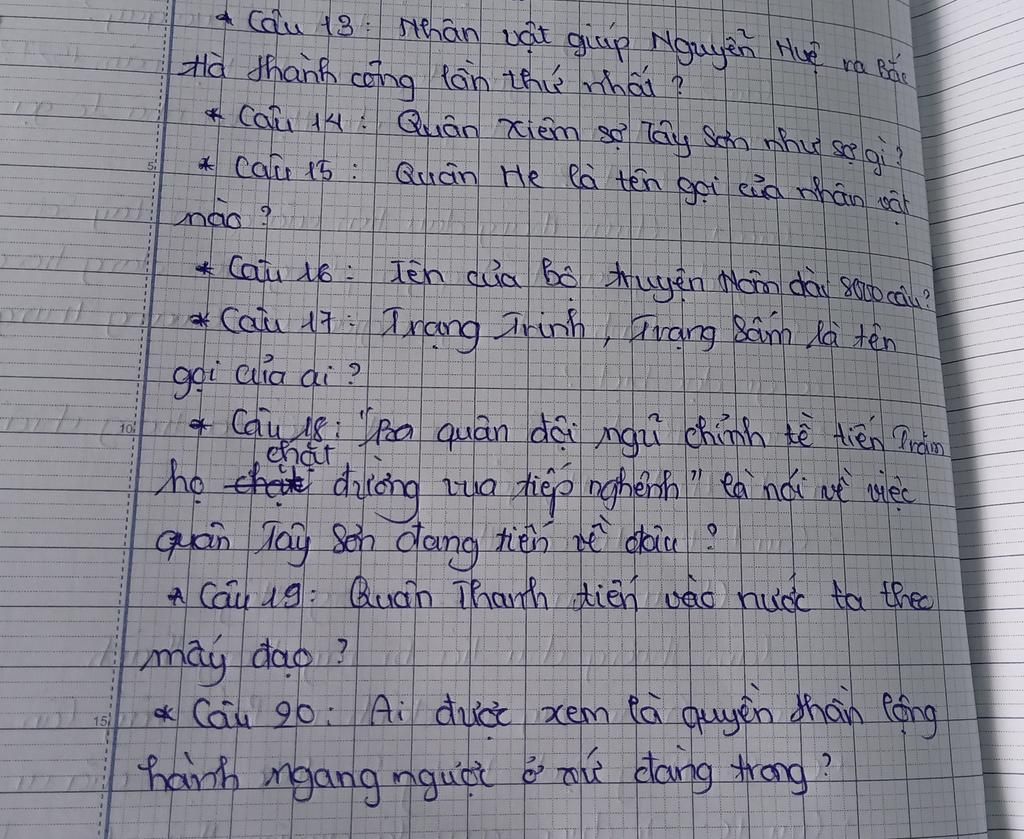 * Câu 13: Nhân vật giúp Nguyễn Huệ ra Bắc
Hà thành công lần thứ nhất?
* Câu 14: Quân Xiêm sợ Tây Sơn như sợ gì?
* Câu 15: Quân He là tên gọi của nhân vật
nào?
* Câu 16: Tên của bộ truyện Nôm dài 8000 câu?
* Câu 17: Trạng Trình, Trạng Sấm là tên
gọi của ai?
* Câu 18: "Ba quân đội ngũ chỉnh tề tiến Trăm
họ chật đường vua tiếp nghênh" là nói về việc
quân Tây Sơn đang tiến về đâu?
* Câu 19: Quân Thanh tiến vào nước ta theo
mấy đạo?
* Câu 20: Ai được xem là quyền thần lộng
hành ngang ngược ở xứ đàng trong?
5
10
15